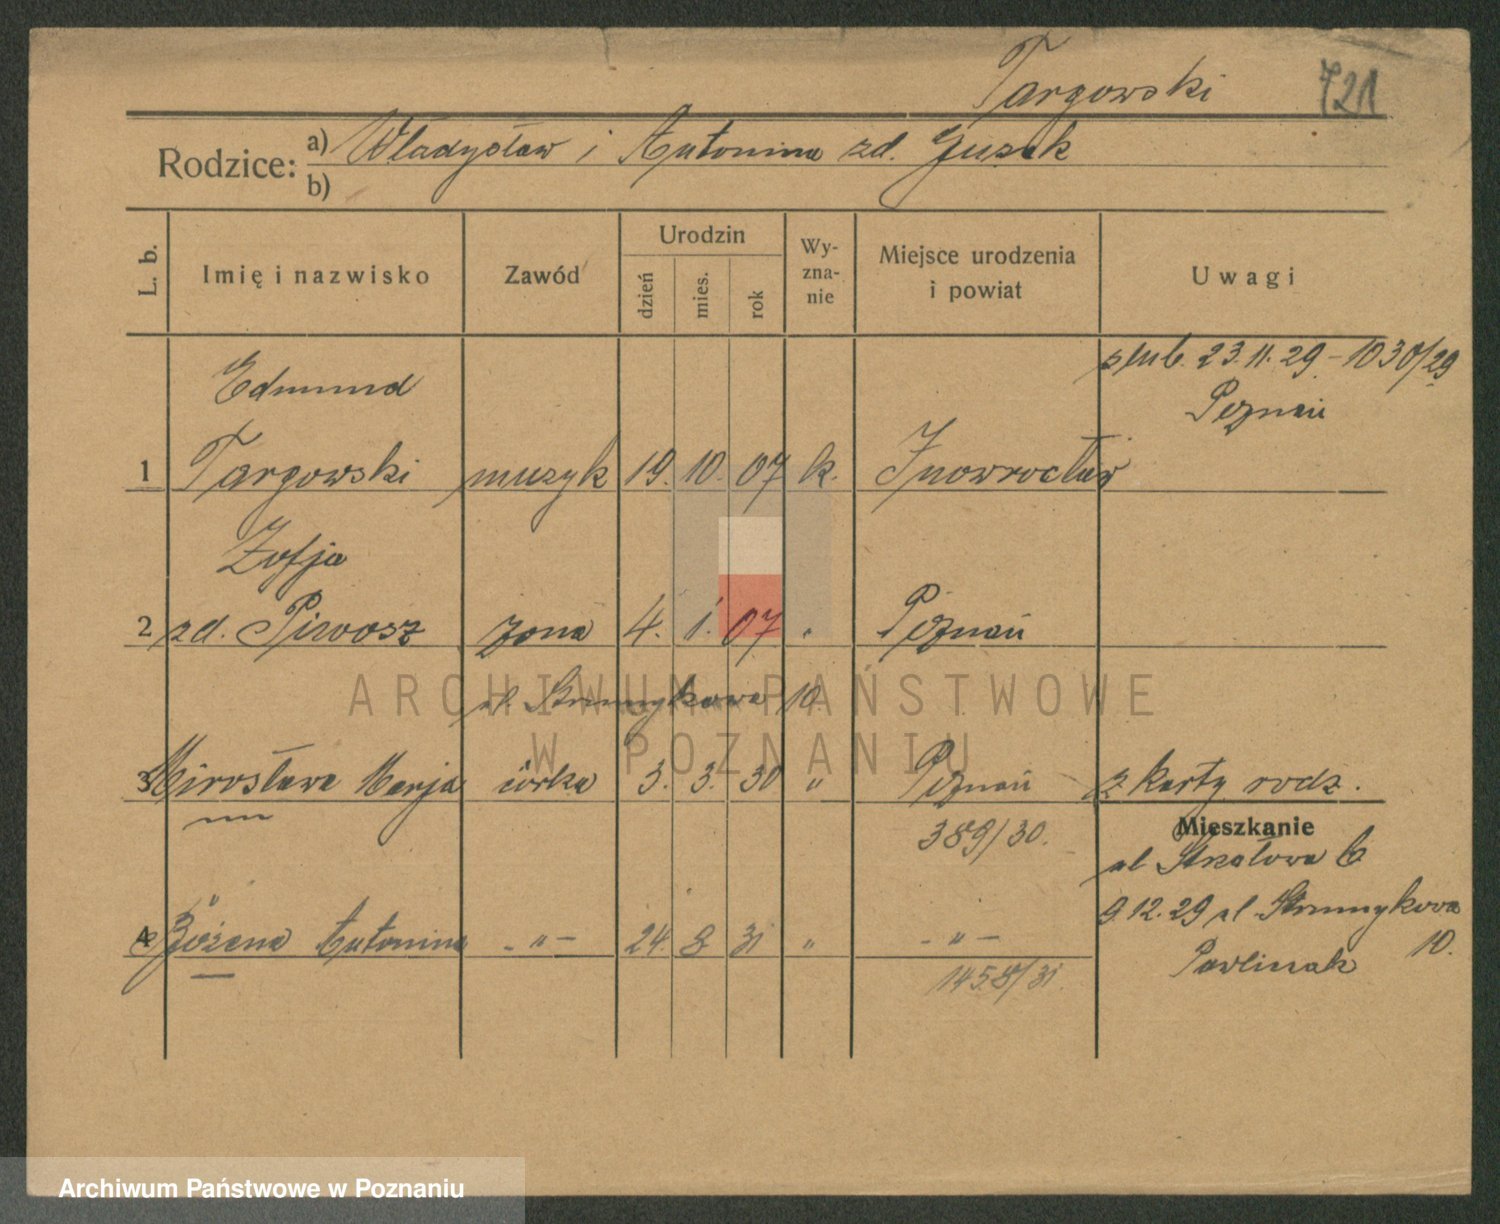 Targowski 721
Rodzice: a) Władysław i Antonina zd. Gusek
b)
L. b. Imię i nazwisko Zawód Urodzin dzień mies. rok Wy-zna-nie Miejsce urodzenia i powiat Uwagi
ślub. 23.11.29 - 1030/29
Edmund Poznań
1 Targowski muzyk 19. 10. 07 k. Inowrocław
Zofja
2 zd. Piwosz żona 4. 1. 07 „ Poznań
ul. Strumykowa 10.
3 Mirosława Marja córka 3. 3. 30 „ Poznań z karty rodz.
389/30. Mieszkanie
ul Strzałowa 6
9.12.29 ul. Strumykowa
4 Bożena Antonina - „ - 24 8 31 „ - „ - 10.
Pawliczak
1458/31.
ARCHIWUM PAŃSTWOWE
W POZNANIU
Archiwum Państwowe w Poznaniu